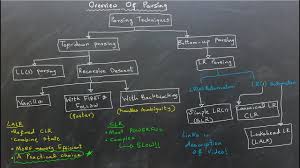 Overview Of Parsing
Parsing Techniques
Top-down parsing
Bottom-up parsing
LL(1) parsing
Recursive Descent
LR Parsing
LR(0) Automaton
LR(1) Automaton
Vanilla
With FIRST &
FOLLOW
(faster)
With Backtracking
(handles Ambiguity)
Simple LR(1)
SLR
Canonical LR
CLR
Lookahead LR(1)
(LALR)
LALR
Refined CLR
Combine state
More memory Efficient
A Practical choice!
CLR
Most POWERFUL
Complex
SLOW!!
Links in
description
of Video!